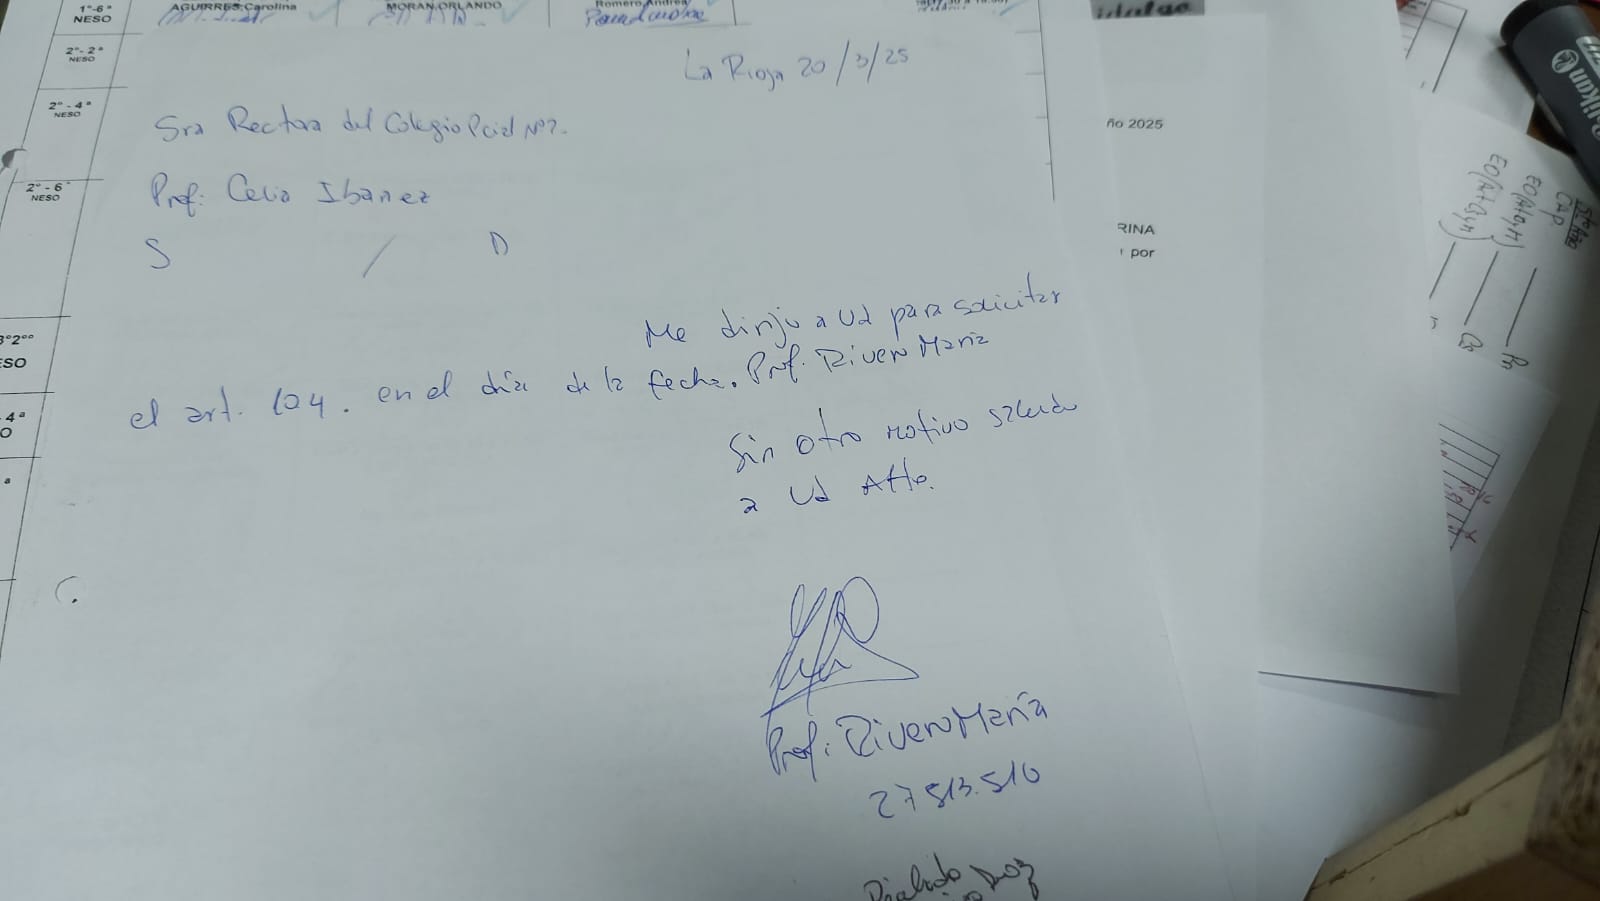 1°-6ª
NESO
AGUIRRES,Carolina
MORAN,ORLANDO
Romero,Andrea
2°-2ª
NESO
2°-4ª
NESO
2°-6
NESO
3°2ºº
ESO
4ª
O
ª
La Rioja 20/3/25
Sra Rectora del Colegio Pcial Nº2.
Prof: Celia Ibanez
S / D
Me dirijo a Ud para solicitar
el art. 104. en el día de la fecha. Prof. Rivero María
Sin otro motivo saludo
a Ud Atte.
Prof: Rivero María
27 513.510
ño 2025
RINA
por
Pelikan